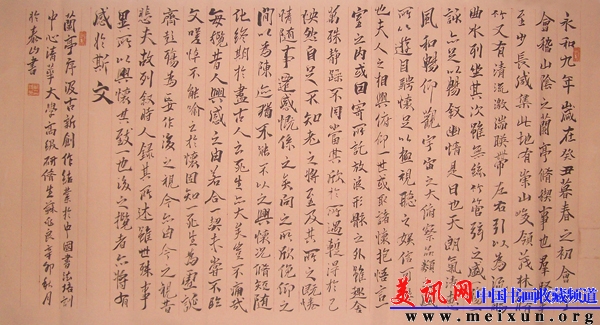 永和九年歲在癸丑暮春之初會
會稽山陰之蘭亭脩禊事也羣賢
至少長咸集此地有崇山峻領茂林脩
竹又有清流激湍暎帶左右引以為流觴
曲水列坐其次雖無絲竹管弦之盛
詠亦足以暢敘幽情是日也天朗氣清惠
風和暢仰觀宇宙之大俯察品類
所以遊目騁懷足以極視聽之娛信可
也夫人之相與俯仰一世或取諸懷抱悟言一
室之內或因寄所託放浪形骸之外雖趣舍
萬殊靜躁不同當其欣於所遇暫得於己
怏然自足不知老之將至及其所之既惓
情隨事遷感慨係之矣向之所欣俛仰之
間以為陳迹猶不能不以之興懷況脩短隨
化終期於盡古人云死生亦大矣豈不痛哉
每攬昔人興感之由若合一契未嘗不臨
文嗟悼不能喻之於懷固知死生為虛誕
齊彭殤為妄作後之視今亦由今之視昔
悲夫故列敘時人錄其所述雖世殊事
異所以興懷其致一也後之攬者亦將有
感於斯文
蘭亭序汲古新創作結業於中國書法培訓
中心清華大學高級研修生蘇永良辛卯秋月
於泰山書
美讯网 中国书画收藏频道
www.meixun.org